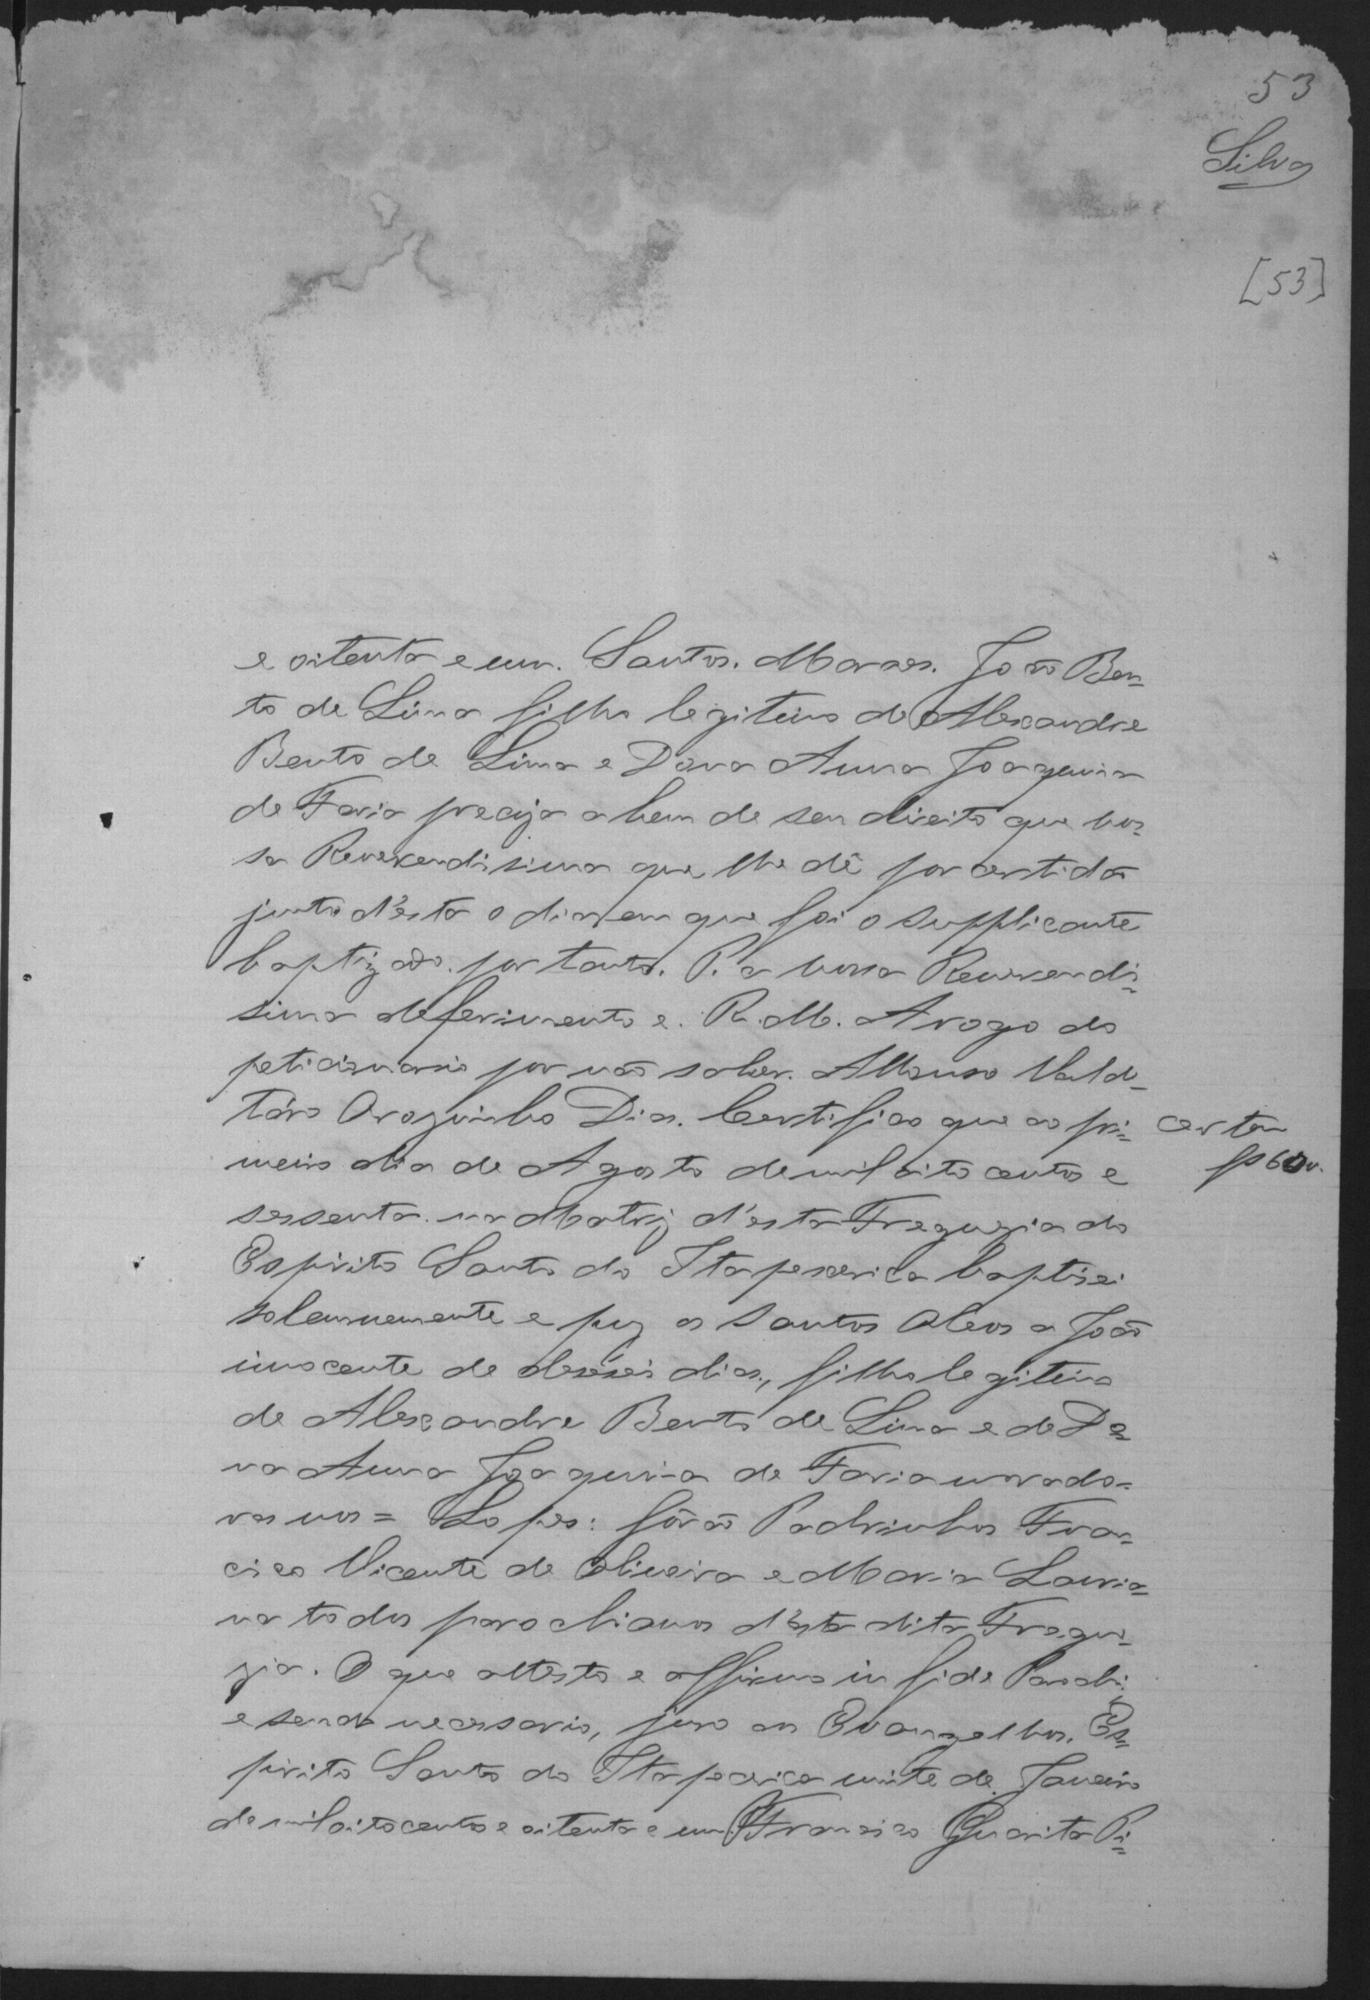 53
Silva
[53]
e oitenta e um. Santos. Moraes. João Ben=
to de Lima filho legitimo de Alexandre
Bento de Lima e Dona Anna Joaquina
de Faria preciza a bem de seu direito que vos-
sa Reverendissima que lhe dê por certidão
junto d'ésta o dia em que foi o supplicante
baptizado. por tanto. P. a vossa Reverendi=
sima deferimento e. R. M. Arogo do
peticionario por não saber. Affonso Valde-
táro Orozimbo Dias. Certifico que ao pri=
meiro dia de Agosto de mil oito centos e
sessenta na Matriz d'esta Freguezia do
Espirito Santo do Itapecerica baptisei
solemnemente e puz os Santos Oleos a João
innocente de deseseis dias, filho legitimo
de Alexandre Bento de Lima e de Do=
na Anna Joaquina de Faria morado-
res nos = Lopes: fôrão Padrinhos Fran=
cisco Vicente de Oliveira e Maria Lauria=
na todos parochianos d'ésta dita Fregue-
zia. O que attesto e affirmo in fide Parochi;
e sendo necessario, juro aos Evangelhos. Es=
pirito Santo do Itapecerica vinte de Janeiro
de mil oitocentos e oitenta e um. Francisco Guarita Pi=